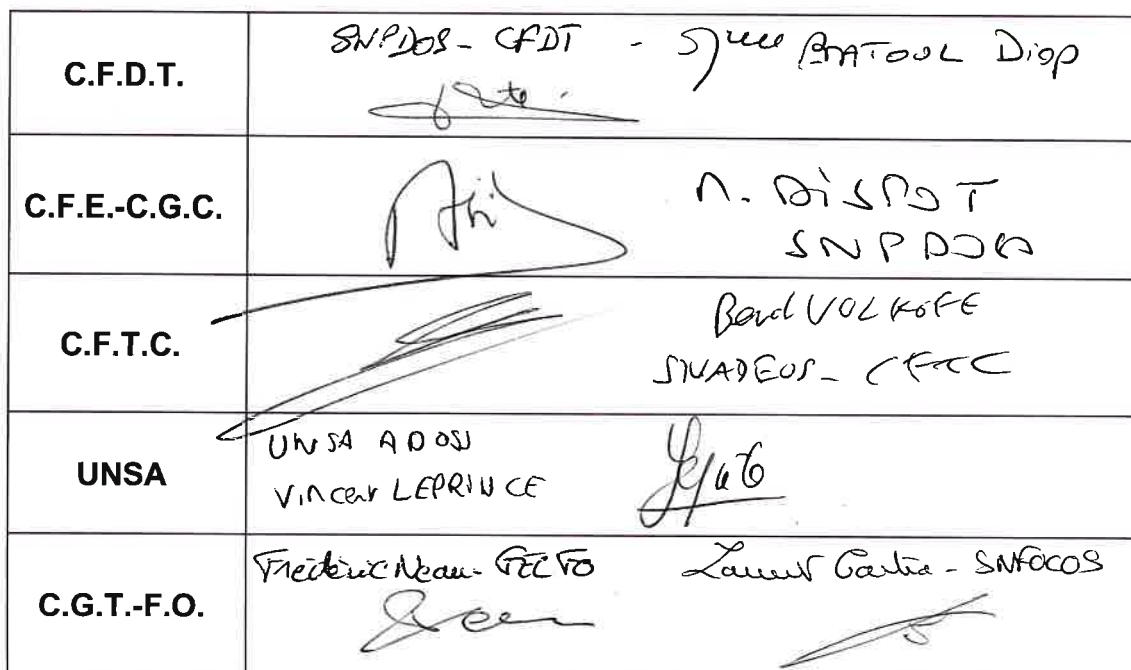 C.F.D.T.
SNPDOS - CFDT - BATOUL Diop
C.F.E.-C.G.C.
DISPOT
SNPDOS
C.F.T.C.
VOLKOFF
SNADEOS - CFTC
UNSA
UNSA ADOSS
Vincent LEPRINCE
C.G.T.-F.O.
Frédéric Neau - FEC FO Laurent - SNFOCOS